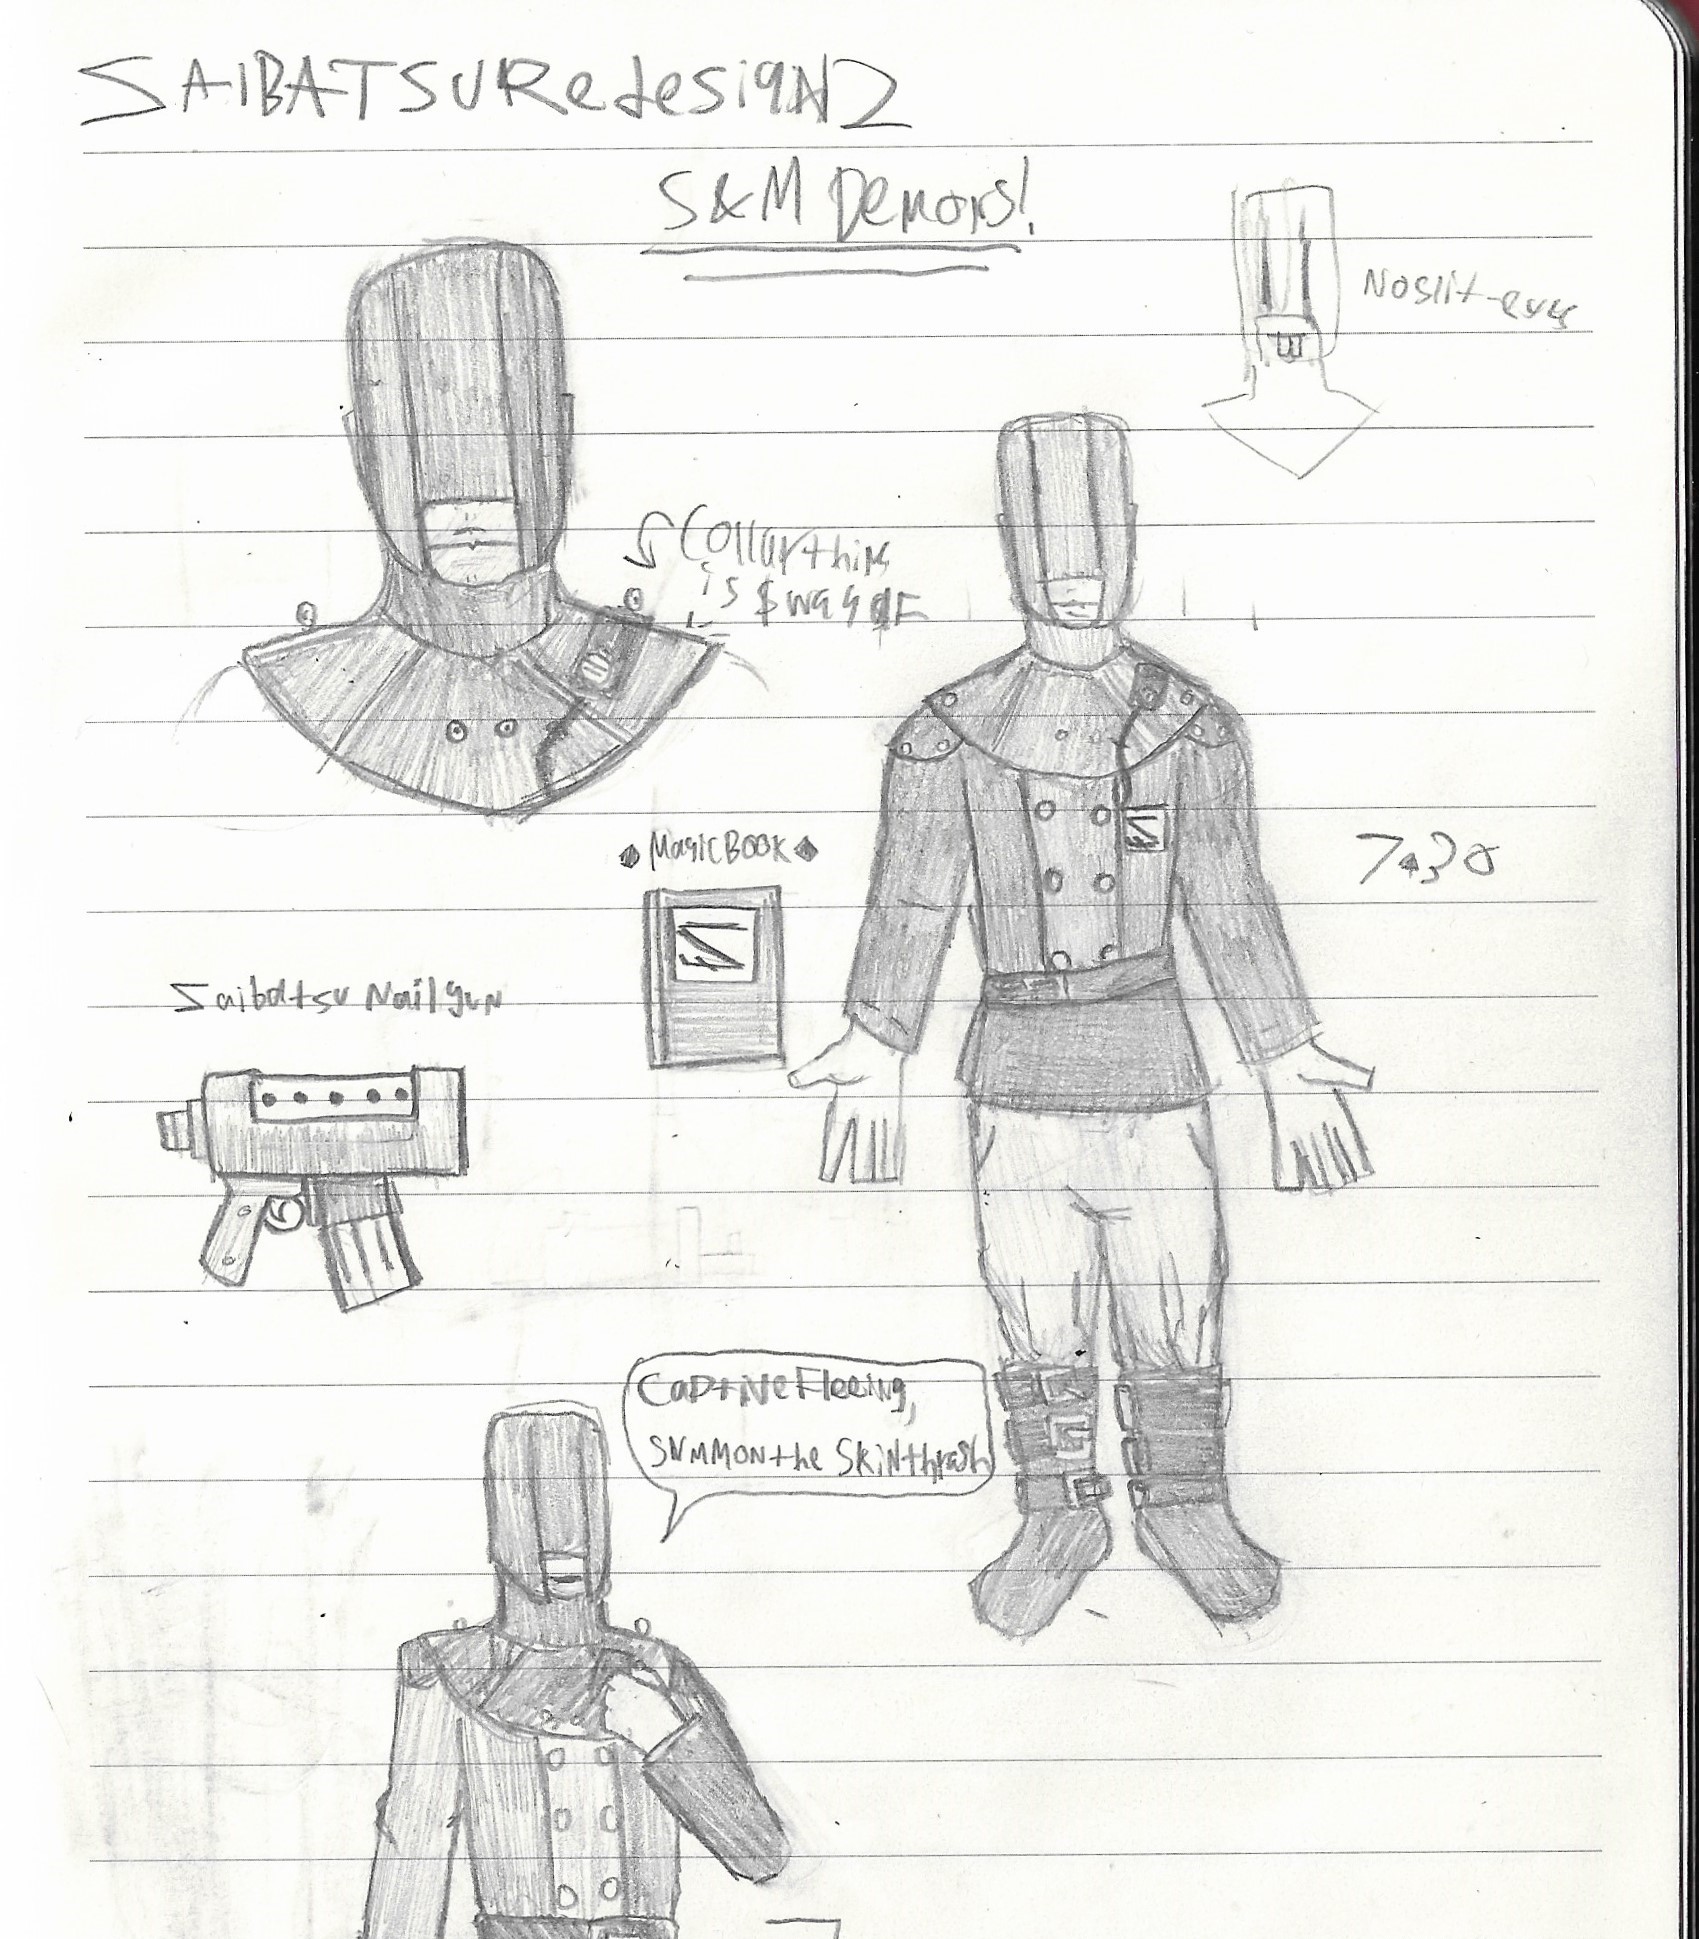 SAIBATSU Redesign 2
S&M Demons!
No slit-eyes
Collar thing
is $wag
◆ Magic BOOK ◆
Saibatsu Nailgun
Captive Fleeing,
summon the Skinthrash